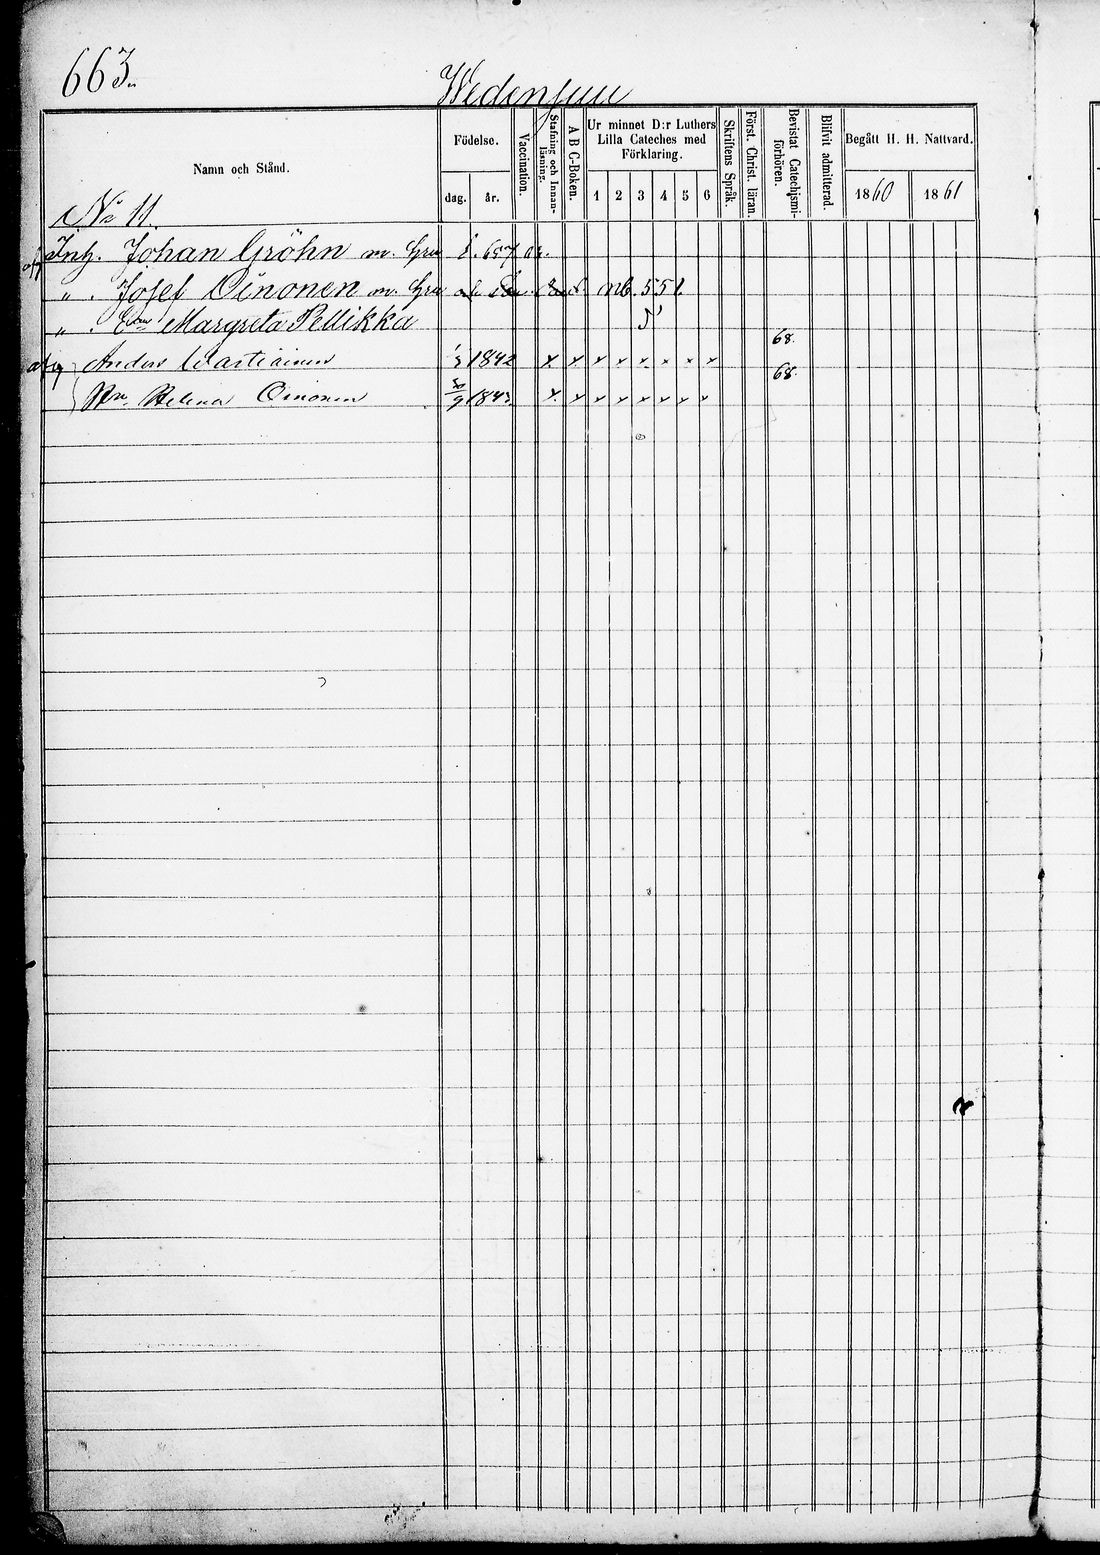 663.
Wedensuu
Namn och Stånd.
Födelse.
dag. år.
Vaccination.
Stafning och Innan-läsning.
A B C-Boken.
Ur minnet D:r Luthers Lilla Cateches med Förklaring.
1 2 3 4 5 6
Skriftens Språk.
Först. Christ. läran.
Bevistat Catechismi-förhören.
Blifvit admitterad.
Begått H. H. Nattvard.
1860 1861
No 11.
Inh. Johan Gröhn m.
" . Josef Oinonen m. 551
" . Margreta Pellikka
68.
Anders Wartiainen 1842 x x x x x x x x
68.
Helena Oinonen 30/9 1843. x x x x x x x x